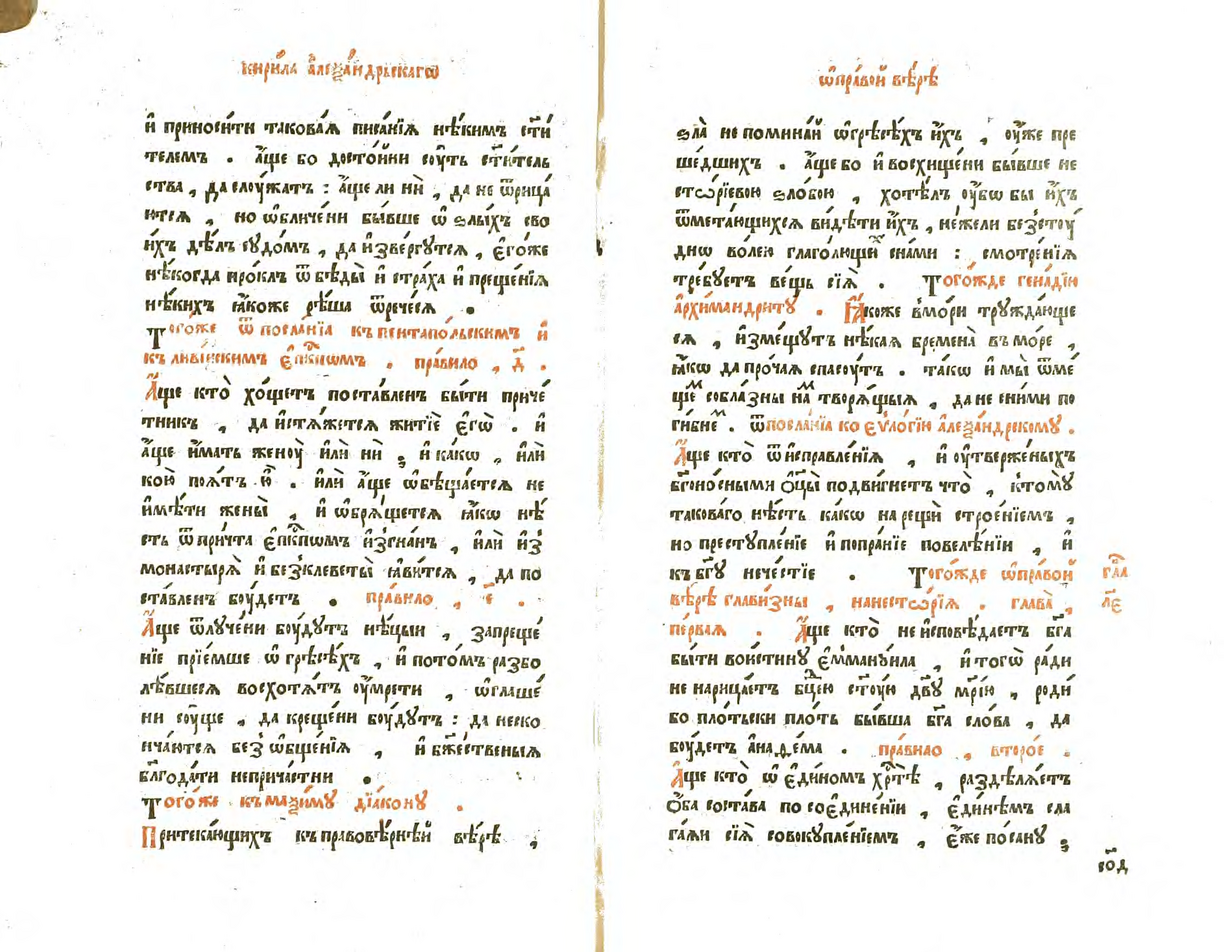 кири́ла а҆леѯа́ндрьскагѡ
и҆ приноси́ти такова́ѧ писа́нїѧ нѣ́кимъ ст҃и
телемъ . а҆́ще бо досто́йни сꙋ́ть ст҃и́тель
ства , да слꙋ́жатъ : а҆́ще ли нѝ , да не ѿрица́
ютсѧ , но ѡ҆бличе́ни бы́вше ѡ҆ ѕлы́хъ сво
и́хъ дѣ́лъ сꙋдо́мъ , да и҆зве́ргꙋтсѧ , є҆го́же
нѣ́когда ироклъ ѿ бѣды̀ и҆ стра́ха и҆ преще́нїѧ
нѣ́кихъ ꙗ҆́коже рѣ́ша ѿрече́сѧ .
Того́же ѿ посла́нїа къ пентапо́льскимъ и҆
къ ливі́искимъ є҆пⷭ҇кпѡмъ . пра́вило , д҃ .
А҆́ще кто̀ хо́щетъ поста́вленъ бы́ти приче́
тникъ , да и҆стѧ́жетсѧ житїѐ є҆гѡ̀ . и҆
а҆́ще и҆́мать женꙋ̀ и҆лѝ нѝ ; и҆ ка́кѡ , и҆лѝ
кою̀ поѧ́тъ ю҆̀ . и҆лѝ а҆́ще ѡ҆бѣща́етсѧ не
и҆мѣ́ти жены̀ , и҆ ѡ҆брѧ́щетсѧ ꙗ҆́кѡ нѣ́
сть ѿ при́чта є҆пⷭ҇кпѡмъ и҆згна́нъ , и҆лѝ и҆з̾
монастырѧ̀ и҆ без̾клеветы̀ ꙗ҆ви́тсѧ , да по
ста́вленъ бꙋ́детъ . пра́вило , є҃ .
А҆́ще ѿлꙋче́ни бꙋ́дꙋтъ нѣ́цыи , запреще́
нїе прїе́мше ѡ҆ грѣсѣ́хъ , и҆ пото́мъ разбо
лѣ́вшесѧ восхотѧ́тъ ᲂу҆мре́ти , ѡ҆глаше́
ни сꙋ́ще , да креще́ни бꙋ́дꙋтъ : да неско
нча́ютсѧ без̾ ѡ҆бще́нїѧ , и҆ бж҃е́ственыѧ
бл҃года́ти неприча́стни .
Того́же къ маѯи́мꙋ дїа́конꙋ .
Притека́ющихъ къ правовѣ́рнѣй вѣ́рѣ ,
ѡ҆пра́вой вѣ́рѣ
ѕла̀ не помина́й ѡ҆ грѣсѣ́хъ и҆́хъ , ᲂу҆же пре
ше́дшихъ . а҆́ще бо и҆ восхище́ни бы́вше не
сто́рїевою ѕло́бою , хотѣ́лъ ᲂу҆́бѡ бы и҆́хъ
ѿмета́ющихсѧ ви́дѣти и҆́хъ , не́жели без̾стꙋ́
днѡ во́лею глаго́лющиⷯ с на́ми : смотре́нїѧ
тре́бꙋетъ ве́щь сїѧ̀ . Того́жде гена́дїю
а҆рхимандри́тꙋ . Ꙗ҆́коже в̾мо́ри трꙋжда́юще
сѧ , и҆зме́щꙋтъ нѣ́каѧ бремена̀ въ мо́ре ,
ꙗ҆́кѡ да про́чаѧ спасꙋ́тъ . та́кѡ и҆ мы̀ ѿме́
щеⷨ собла́зны наⷨ творѧ́щыѧ , да не с ни́ми по
ги́бнеⷨ . ѿ посла́нїа ко є҆ѵло́гїю а҆леѯа́ндрскомꙋ .
А҆́ще кто̀ ѿ и҆справле́нїѧ , и҆ ᲂу҆тверже́ныхъ
бг҃оно́сными ѻ҆ц҃ы̀ подви́гнетъ что̀ , к̾томꙋ̀
такова́го нѣ́сть ка́кѡ на рещѝ строе́нїемъ ,
но престꙋпле́нїе и҆ попра́нїе повелѣ́нїи , и҆
къ бг҃ꙋ нече́стїе . Того́жде ѡ҆пра́вой
вѣ́рѣ главизны , на несто́рїѧ . глава̀ ,
пе́рваѧ . А҆́ще кто̀ не и҆сповѣ́даетъ бг҃а
бы́ти вои́стинꙋ є҆мманꙋ́ила , и҆ тогѡ̀ ра́ди
не нарица́етъ бц҃ею ст҃ꙋ́ю дв҃ꙋ мр҃і́ю , роди́
бо пло́тьски пло́ть бы́вша бг҃а сло́ва , да
бꙋ́детъ а҆на́ѳема . пра́вило , второ́е .
А҆́ще кто̀ ѡ҆ є҆ди́номъ хрⷭ҇тѣ̀ , раздѣлѧ́етъ
ѻ҆́ба соста́ва по соедине́нїи , є҆ди́нѣмъ сла
га́ѧи сїѧ̀ совокꙋпле́нїемъ , є҆́же по са́нꙋ ;
гл҃а
л҃є
со҃д